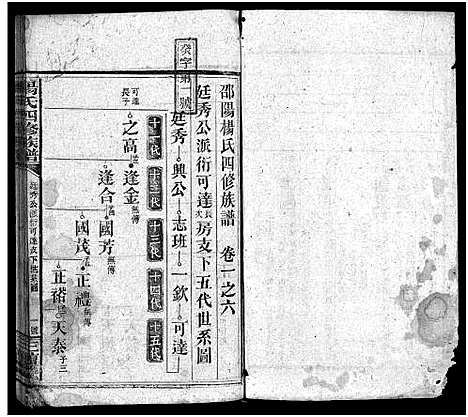 癸字第一號
邵陽楊氏四修族譜 卷一之六
廷秀公派衍可達長房支下五代世系圖
廷秀 興公 志班 一欽 可達
十一代 十二代 十三代 十四代 十五代
可達長子 之高 逢金 無傳
逢合 國芳 無傳
國茂 正禮 無傳
正禧 天泰 子三
楊氏四修族譜
廷秀公派衍可達支下世系圖
一號